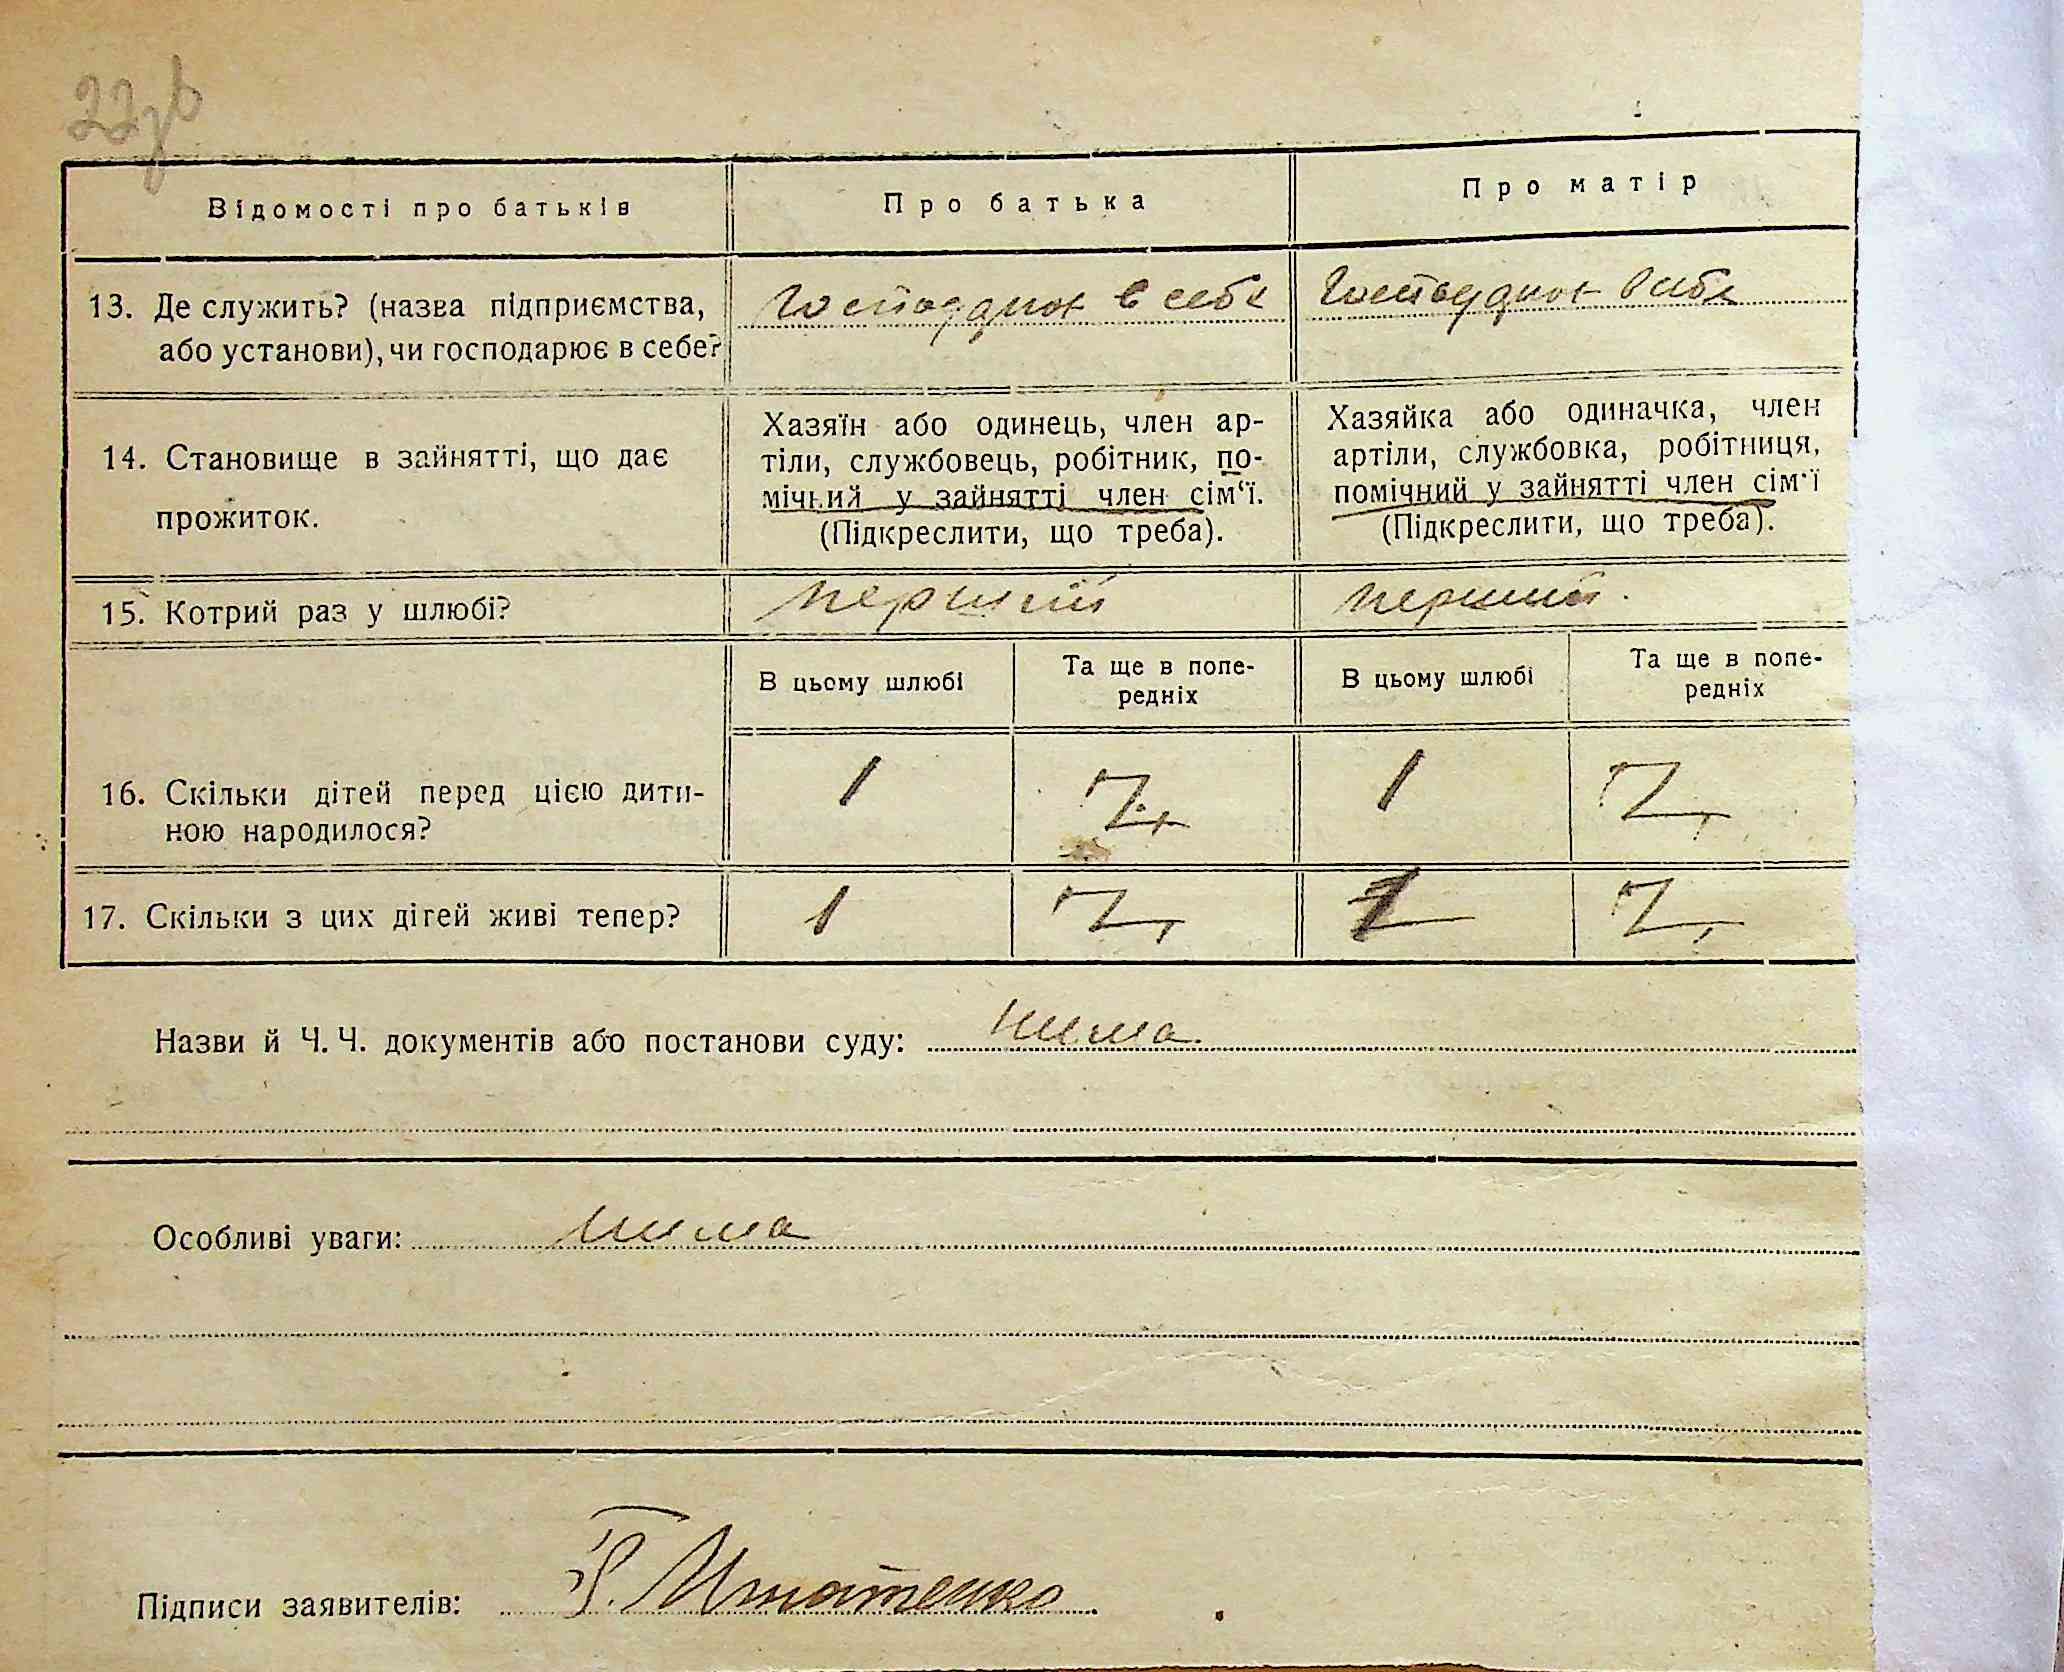 22зв
Відомості про батьків
Про батька
Про матір
13. Де служить? (назва підприємства,
або установи), чи господарює в себе?
Господарює в себе
Господарює в себе
14. Становище в зайнятті, що дає
прожиток.
Хазяїн або одинець, член ар-
тіли, службовець, робітник, по-
мічний у зайнятті член сім‘ї.
(Підкреслити, що треба).
Хазяйка або одиначка, член
артіли, службовка, робітниця,
помічний у зайнятті член сім‘ї
(Підкреслити, що треба).
15. Котрий раз у шлюбі?
перший
перший.
В цьому шлюбі
Та ще в попе-
редніх
В цьому шлюбі
Та ще в попе-
редніх
16. Скільки дітей перед цією дити-
ною народилося?
1
1
17. Скільки з цих дітей живі тепер?
1
1
Назви й Ч. Ч. документів або постанови суду: нима
Особливі уваги: нима
Підписи заявителів: Игнатенко